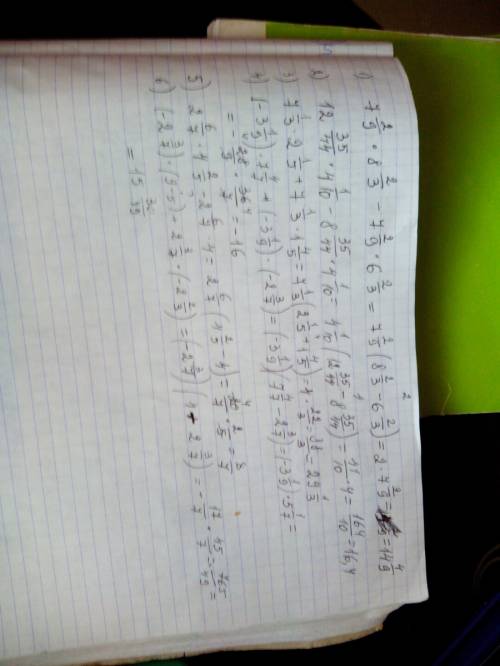 1) 7 2/9 · 8 2/3 - 7 2/9 · 6 2/3 = 7 2/9 (8 2/3 - 6 2/3) = 2 · 7 2/9 = 14 4/9
2) 12 35/44 · 4 1/10 - 8 35/44 · 4 1/10 = 4 1/10 (12 35/44 - 8 35/44) = 41/10 · 4 = 164/10 = 16,4
3) 4 1/3 · 2 1/5 + 4 1/3 · 1 4/5 = 4 1/3 (2 1/5 + 1 4/5) = 4 ·
4) (-3 1/9) · 7 4/7 + (-3 1/9) · (-2 3/7) = (-3 1/9) (7 4/7 - 2 3/7) = (-3 1/9) · 5 1/7 =
= - 28/9 · 36/7 = -16
5) 2 6/7 · 4 2/5 - 2 6/7 · 4 = 2 6/7 (4 2/5 - 4) = 20/7 · 2/5 = 8/7
6) (-2 3/7) · (9-5) + 2 3/7 · (-2 3/7) = (-2 3/7) (4 + 2 3/7) = - 17/7 · 45/7 = 765/49 =
= 15 30/49